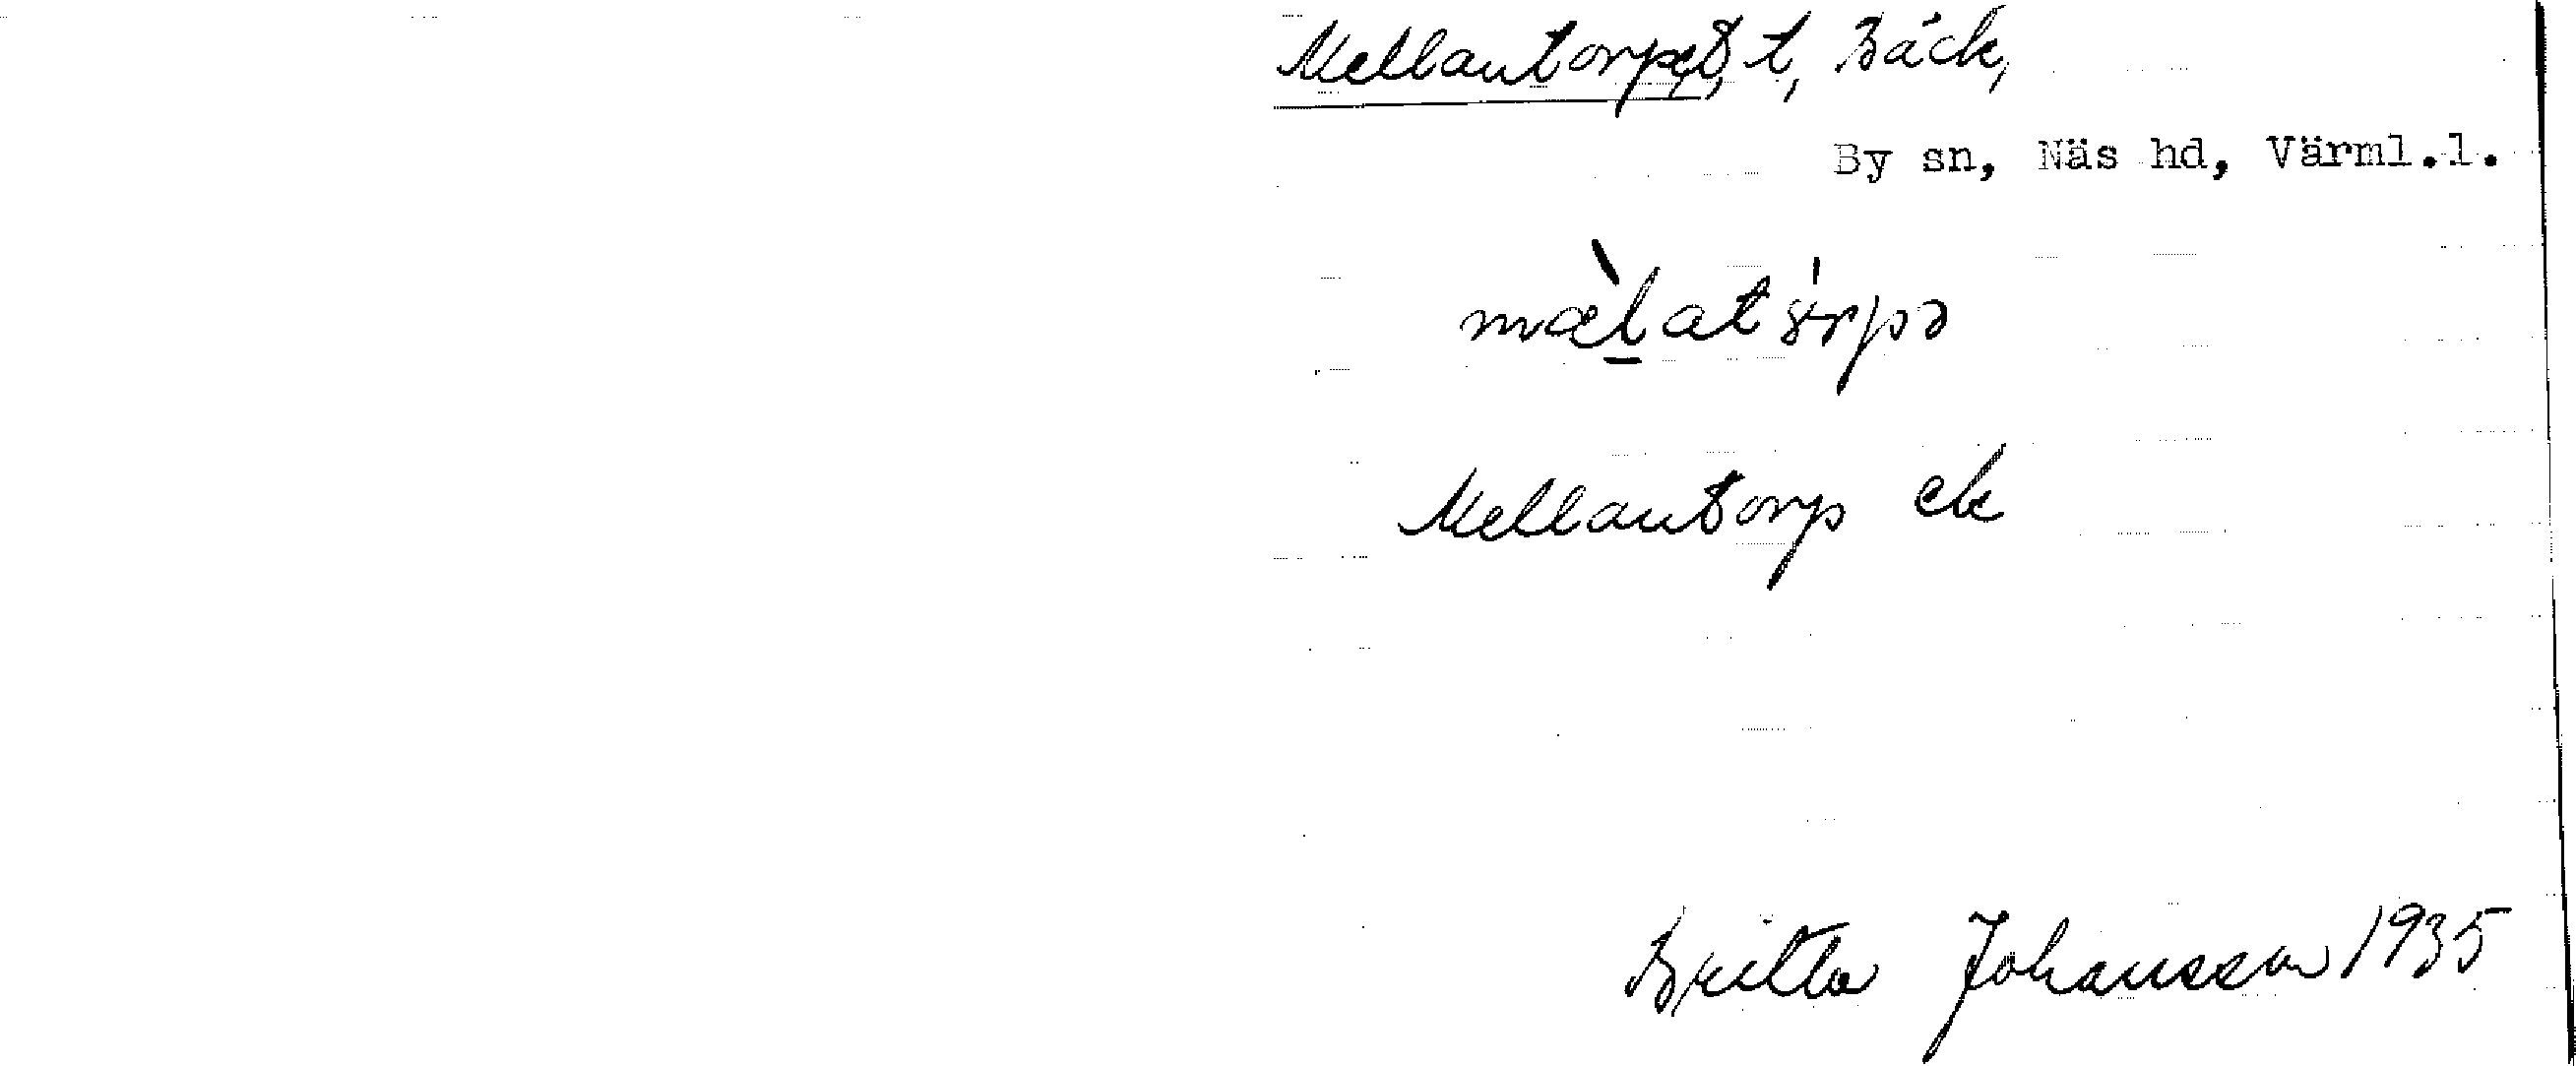 Mellantorpet, t, Bäck,
By sn, Näs hd, Värml.l.
mæ̀latörpə
Mellantorp ek
Britta Johansson 1935